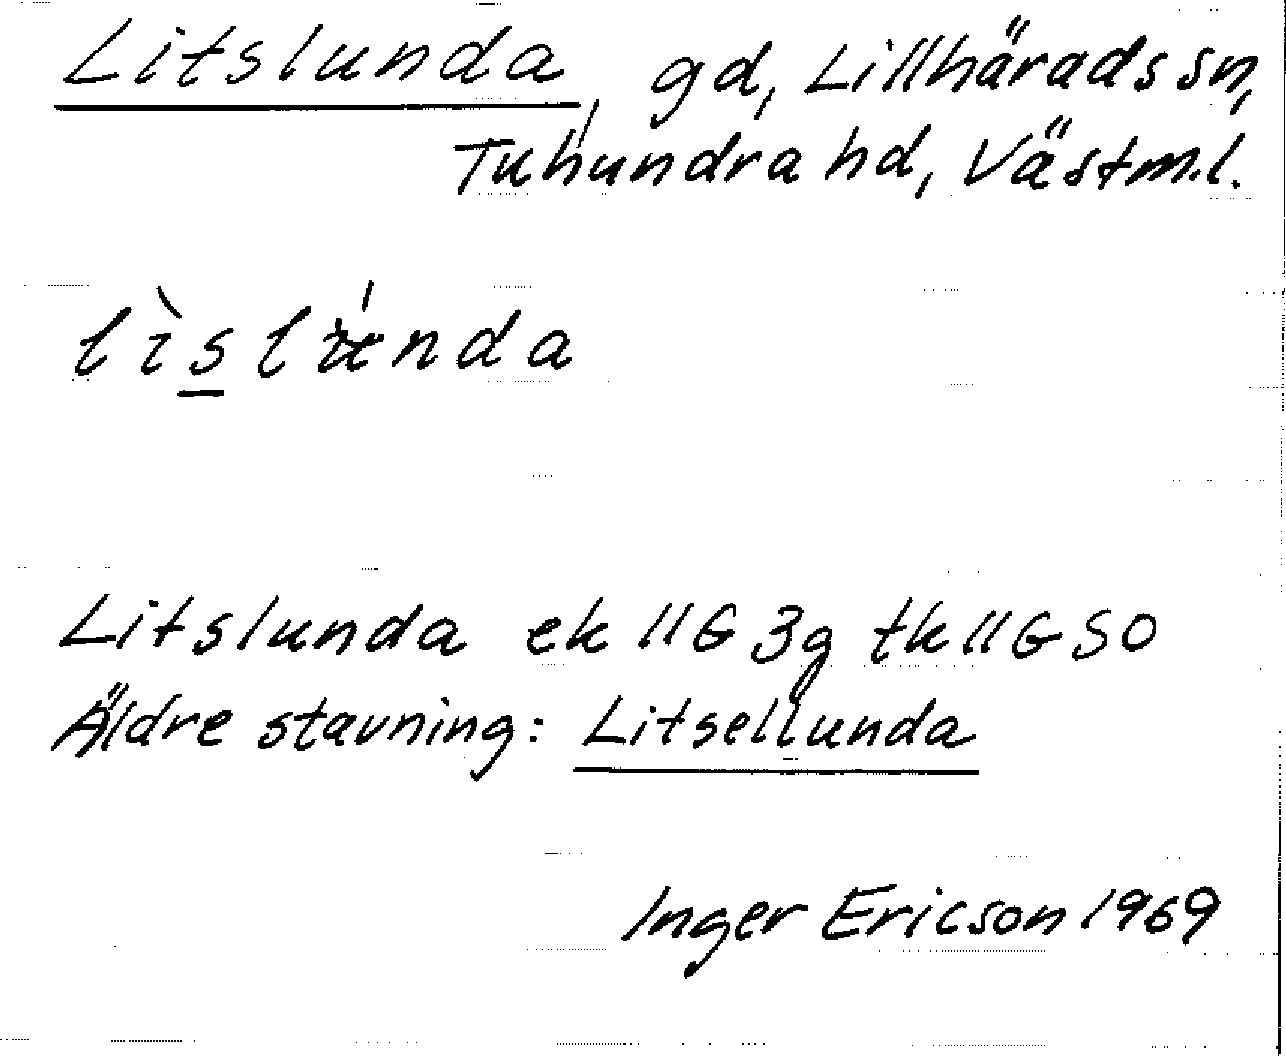 Litslunda, gd, Lillhärads sn,
Tuhundra hd, Västm.l.
Litslunda ek 11G 3g tk 11G SO
Äldre stavning: Litsellunda
Inger Ericson 1969